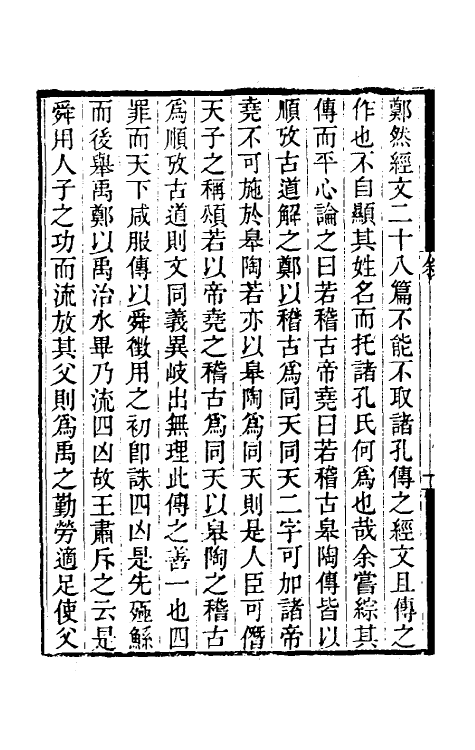 鄭然經文二十八篇不能不取諸孔傳之經文且傳之
作也不自顯其姓名而托諸孔氏何爲也哉余嘗綜其
傳而平心論之曰若稽古帝堯曰若稽古臯陶傳皆以
順攷古道解之鄭以稽古爲同天同天二字可加諸帝
堯不可施於臯陶若亦以臯陶爲同天則是人臣可僭
天子之稱頌若以帝堯之稽古爲同天以臯陶之稽古
爲順攷古道則文同義異岐出無理此傳之善一也四
罪而天下咸服傳以舜徵用之初卽誅四凶是先殛鯀
而後舉禹鄭以禹治水畢乃流四凶故王肅斥之云是
舜用人子之功而流放其父則爲禹之勤勞適足使父